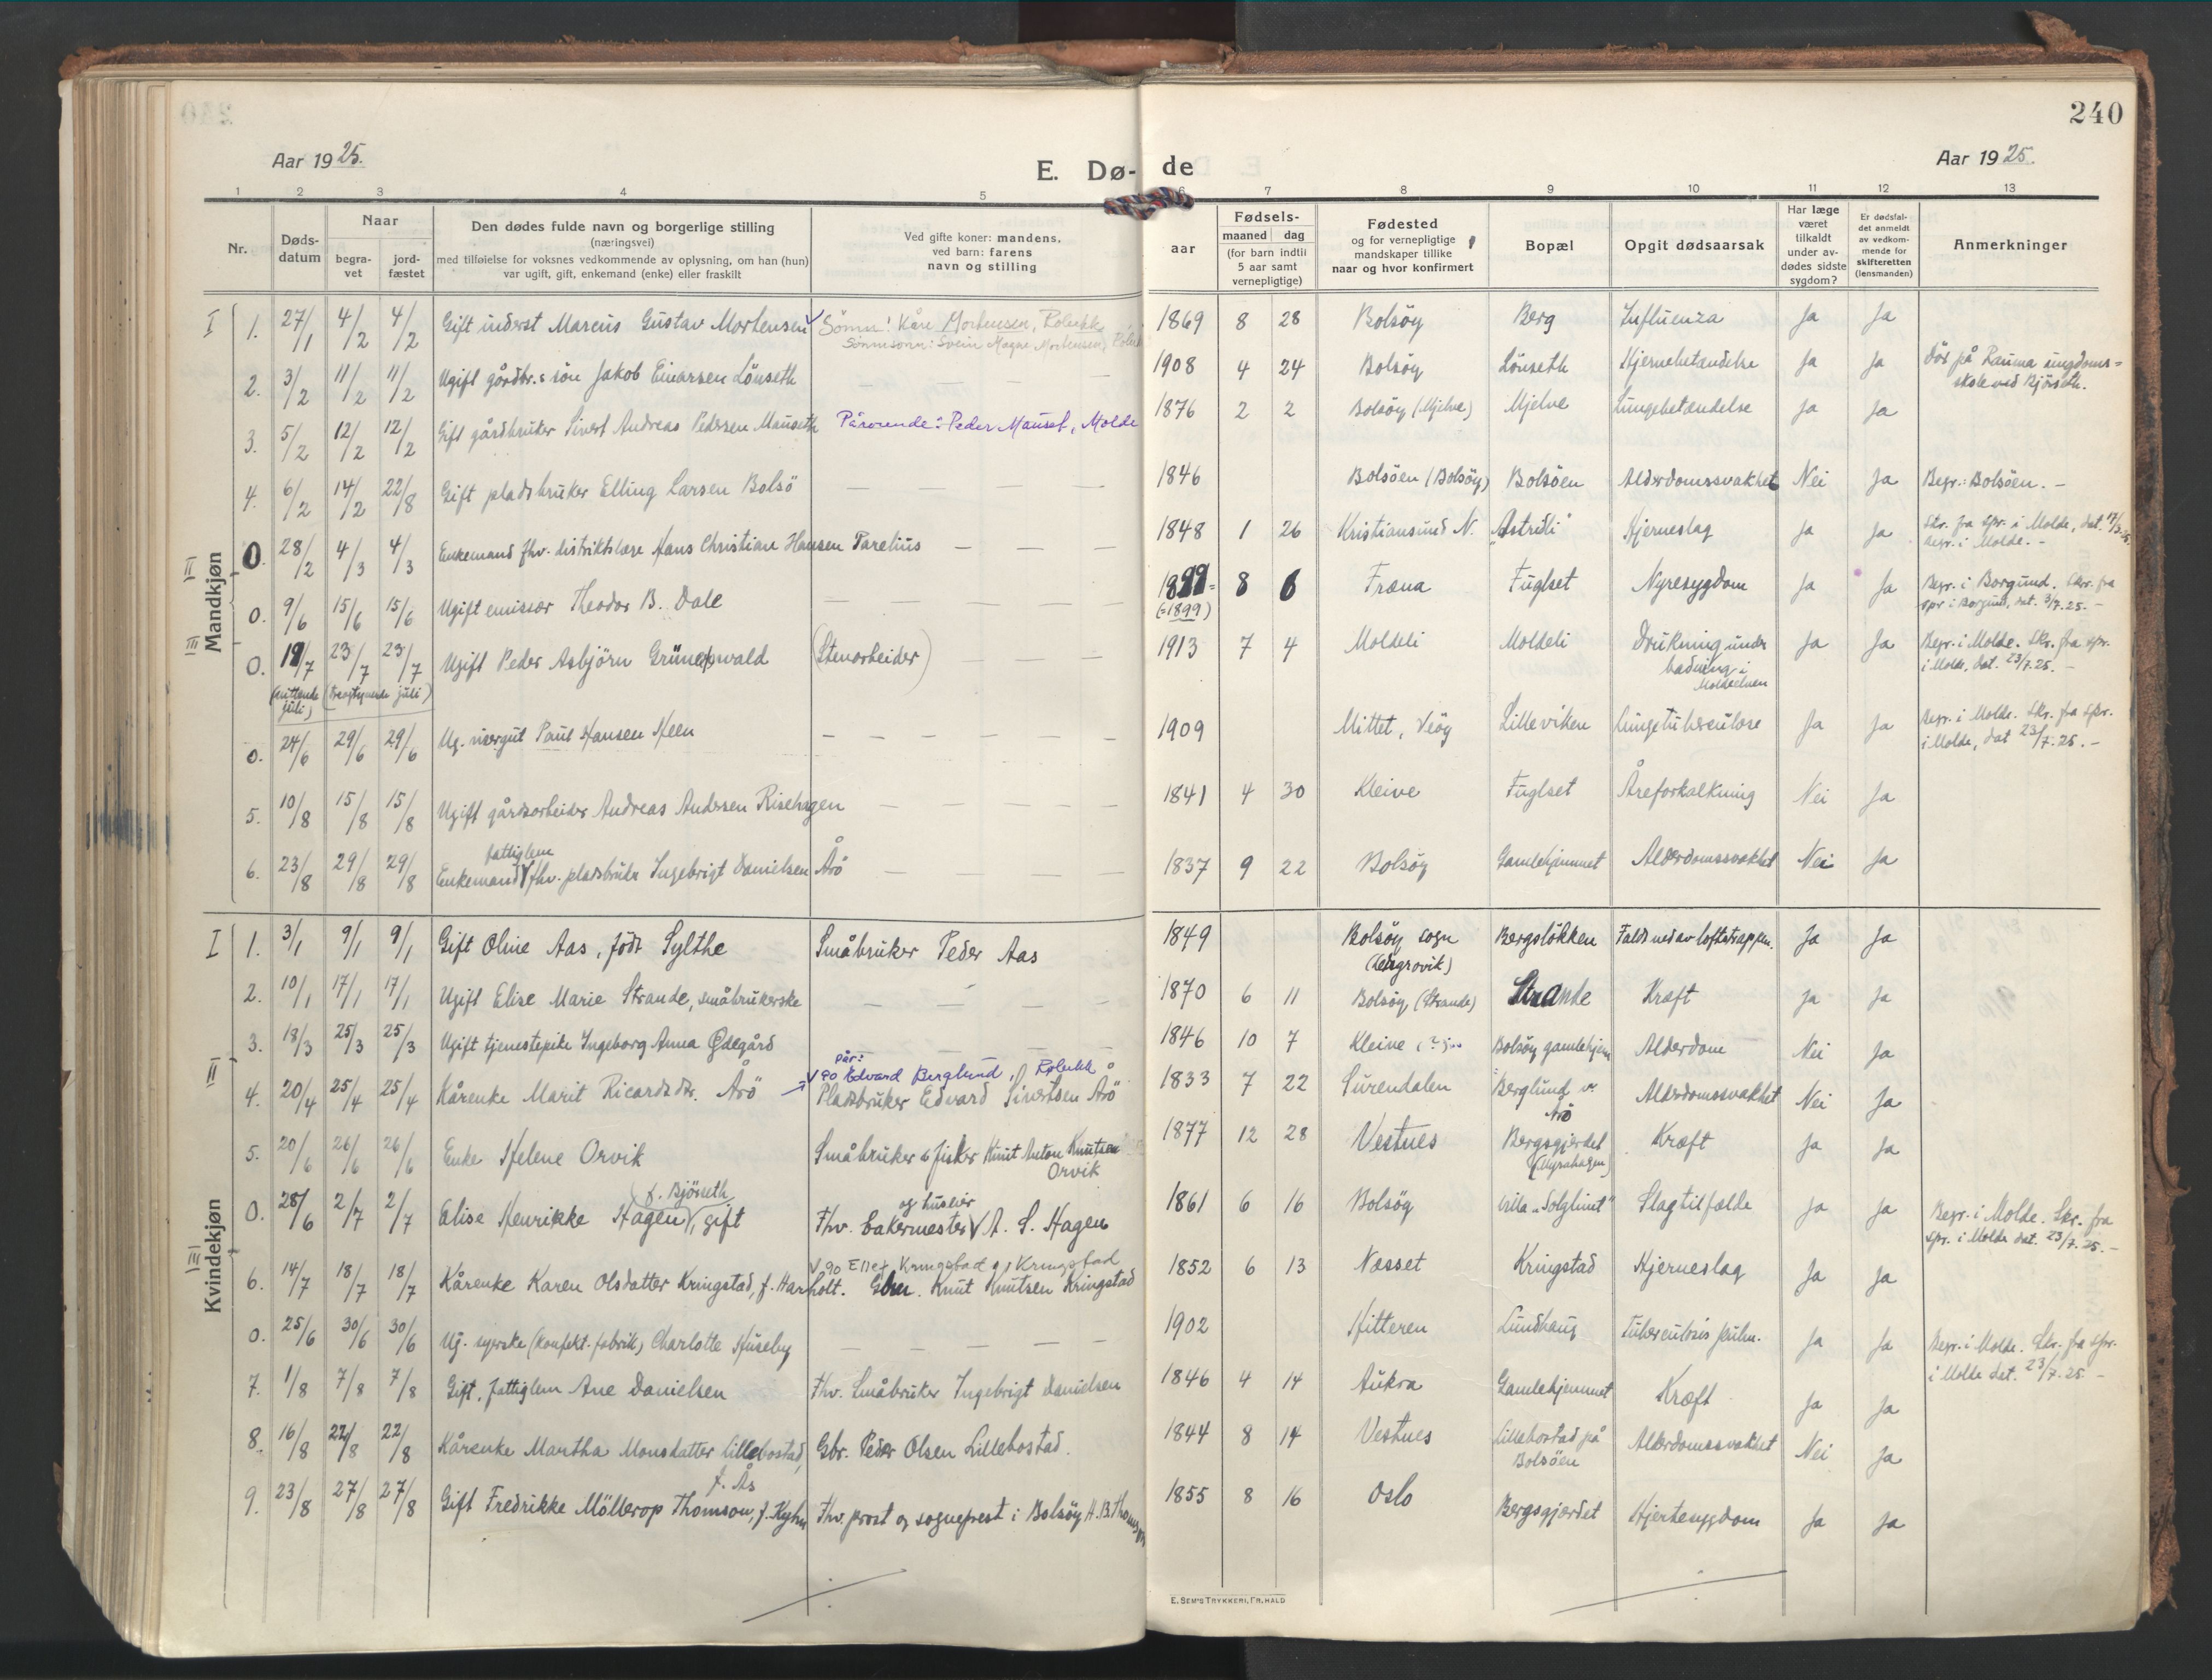 240
Aar 1925.
E. Dø- de
Aar 1925.
1 2 3 4 5 6 7 8 9 10 11 12 13
Nr.
Døds-datum
Naar
begra-vet
jord-fæstet
Den dødes fulde navn og borgerlige stilling
(næringsvei)
med tilføielse for voksnes vedkommende av oplysning, om han (hun)
var ugift, gift, enkemand (enke) eller fraskilt
Ved gifte koner: mandens,
ved barn: farens
navn og stilling
Fødsels-
aar
maaned dag
(for barn indtil
5 aar samt
vernepligtige)
Fødested
og for vernepligtige
mandskaper tillike
naar og hvor konfirmert
Bopæl
Opgit dødsaarsak
Har læge
været
tilkaldt
under av-
dødes sidste
sygdom?
Er dødsfal-
det anmeldt
av vedkom-
mende for
skifteretten
(lensmanden)
Anmerkninger
Mandkjøn
I 1. 27/1 4/2 4/2 Gift inderst Marcus Gustav Mortensen √ Sønn: Kåre Mortensen, Rolvkk 1869 8 28 Bolsöy Berg Influenza Ja Ja
Sönnesönn: Svein Magne Mortensen,
2. 3/2 11/2 11/2 Ugift gårdbr.s sön Jakob Einarsen Lönseth — — — 1908 4 24 Bolsöy Lönseth Hjernebetændelse Ja Ja Död på Rauma ungdoms=
skole ved Björseth.
3. 5/2 12/2 12/2 Gift gårdbruker Sivert Andreas Pedersen Mauseth Pårörende: Peder Mauset, Molde 1876 2 2 Bolsöy (Mjelve) Mjelve Lungebetændelse Ja Ja
4. 6/2 14/2 22/8 Gift pladsbruker Elling Larsen Bolsö — — — — 1846 Bolsöen (Bolsöy) Bolsöen Alderdomssvakhet Nei Ja Begr.: Bolsöen. –
II 0. 28/2 4/3 4/3 Enkemand fhv. distriktslæge Hans Christian Hansen Parelius — — — 1848 1 26 Kristiansund N. „Astridli" Hjerneslag Ja Ja Skr. fra spr. i Molde, dat. 17/3 25.
Begr. i Molde. –
0. 9/6 15/6 15/6 Ugift emissær Theodor B. Dale — — — — 1899= 8 6 Fræna Fuglset Nyresygdom Ja Ja Begr. i Borgund. Skr. fra
(=1899) spr. i Borgund, dat. 3/7.25. –
III 0. 19/7 23/7 23/7 Ugift Peder Asbjörn Grünewald (Stenarbeider) — — — 1913 7 4 Moldeli Moldeli Drukning under Ja Ja Begr. i Molde. Skr. fra spr.
bading i i Molde, dat. 23/7.25. –
Moldeelven
(nittende juli) (treogtyvende juli)
0. 24/6 29/6 29/6 Ug. visergut Paul Hansen Heen — — — — 1909 Mittet, Veöy Lilleviken Lungetuberculose Ja Ja Begr. i Molde. Skr. fra spr.
i Molde, dat 23/7.25. –
5. 10/8 15/8 15/8 Ugift gårdsarbeider Andreas Andersen Risehagen — — — — 1841 4 30 Kleive Fuglset Åreforkalkning Nei Ja
fattiglem
6. 23/8 29/8 29/8 Enkemand √ fhv. pladsbruker Ingebrigt Danielsen Årö — — — 1837 9 22 Bolsöy Gamlehjemmet Alderdomssvakhet Nei Ja
Kvindekjøn
I 1. 3/1 9/1 9/1 Gift Oline Aas, född Sylthe Småbruker Peder Aas 1849 Bolsöy sogn Bergslökken Faldt ned av loftstrappen. Ja Ja
2. 10/1 17/1 17/1 Ugift Elise Marie Strande, småbrukerske — — — — 1870 6 11 Bolsöy (Strande) Strande Kræft Ja Ja
3. 18/3 25/3 25/3 Ugift tjenestepike Ingeborg Anna Ødegård — — — — 1846 10 7 Kleive Bolsöy gamlehjem Alderdom Nei Ja
pår:
√ 90 Edvard Berglund, Rolvkk
II 4. 20/4 25/4 25/4 Kårenke Marit Ricardsdtr. Årö Pladsbruker Edvard Sivertsen Årö 1833 7 22 Surendalen Berglund v. Årö Alderdomssvakhet Nei Ja
5. 20/6 26/6 26/6 Enke Helene Orvik Småbruker & fisker Knut Anton Knutsen Orvik 1877 12 28 Vestnes Bergsgjerdet (Myrahagen) Kræft Ja Ja
f. Björseth
og huseier
0. 28/6 2/7 2/7 Elise Henrikke Hagen √, gift Fhv. bakermester √ A. S. Hagen 1861 6 16 Bolsöy Villa „Solglimt" Slagtilfælde Ja Ja Begr. i Molde. Skr. fra
spr. i Molde dat. 23/7.25. –
√ 90 Ellef Kringstad og Kringstad
III 6. 14/7 18/7 18/7 Kårenke Karen Olsdatter Kringstad, f. Harholt. Gbr. Knut Knutsen Kringstad 1852 6 13 Nesset Kringstad Hjerneslag Ja Ja
0. 25/6 30/6 30/6 Ug. syerske (konfekt. fabrik) Charlotte Huseby — — — — 1902 Hitteren Lundhaug Tuberculosis pulm. Ja Ja Begr. i Molde. Skr. fra spr.
i Molde dat. 23/7.25 –
7. 1/8 7/8 7/8 Gift, fattiglem Ane Danielsen Fhv. Småbruker Ingebrigt Danielsen 1846 4 14 Aukra Gamlehjemmet Kræft Ja Ja
8. 16/8 22/8 22/8 Kårenke Martha Monsdatter Lillebostad, f. Ås Gbr. Peder Olsen Lillebostad. 1844 8 14 Vestnes Lillebostad på Bolsöen Alderdomssvakhet Nei Ja
9. 23/8 27/8 27/8 Gift Fredrikke Möllerop Thomson, f. Kyhn Fhv. prost og sogneprest i Bolsöy H. B. Thomson 1855 8 16 Oslo Bergsgjerdet Hjertesygdom Ja Ja
E. SEM'S TRYKKERI, FR. HALD